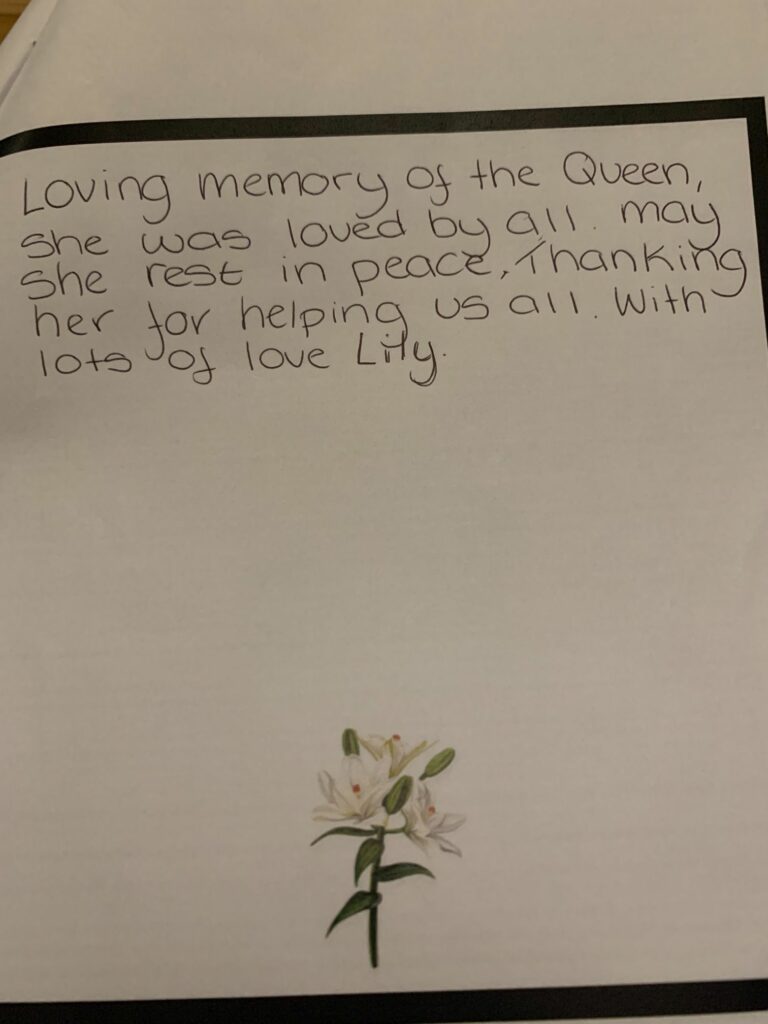 Loving memory of the Queen,
she was loved by all. may
she rest in peace, Thanking
her for helping us all. With
lots of love Lily.